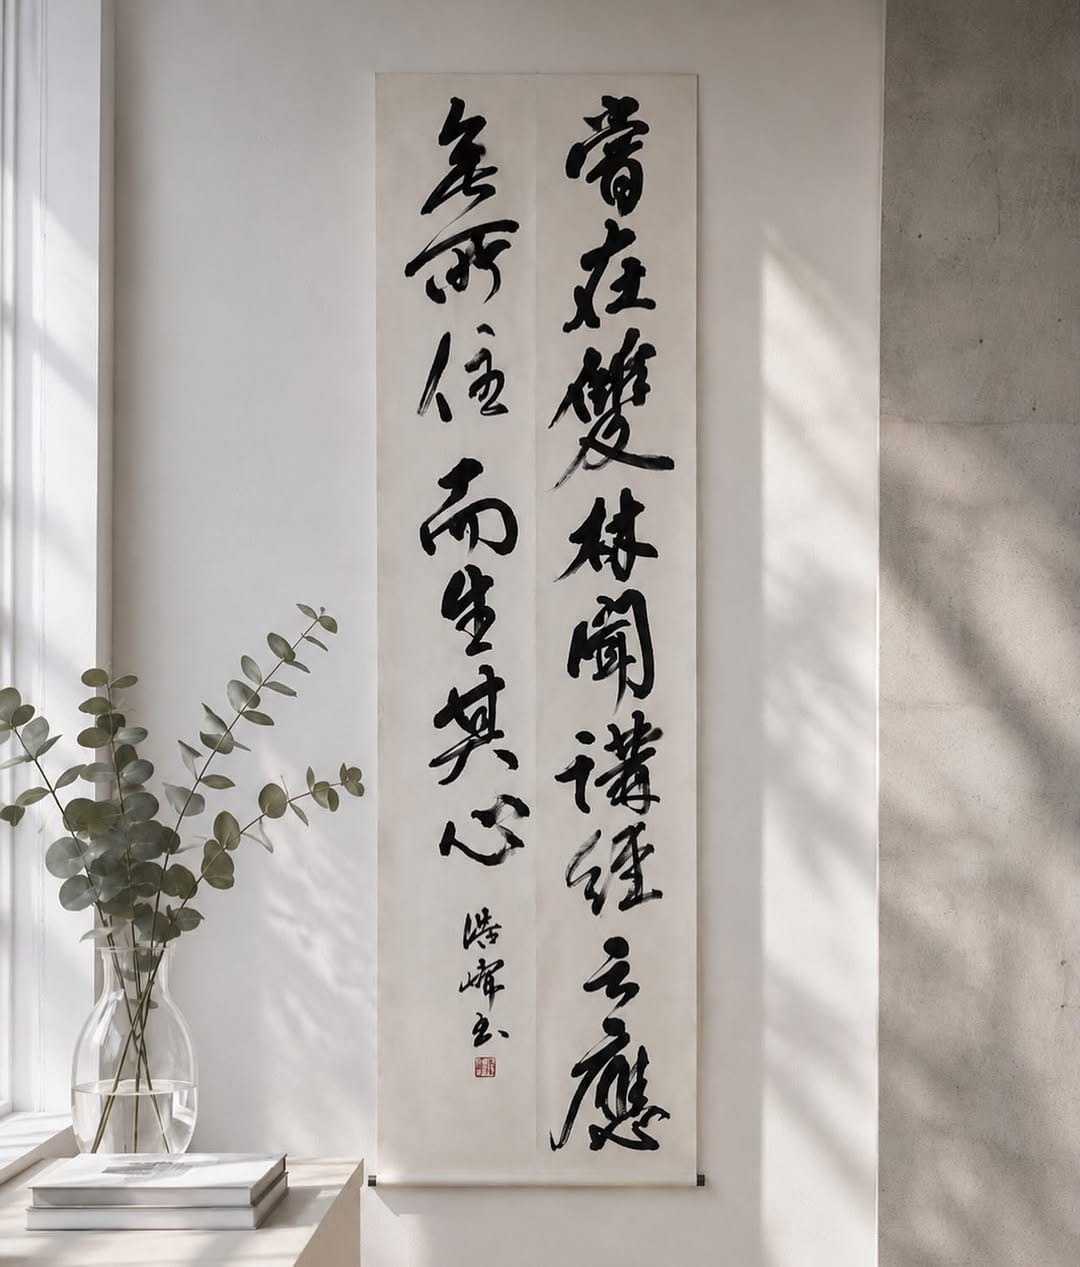 嘗在雙林聞講經云應
無所住而生其心
浩峰书